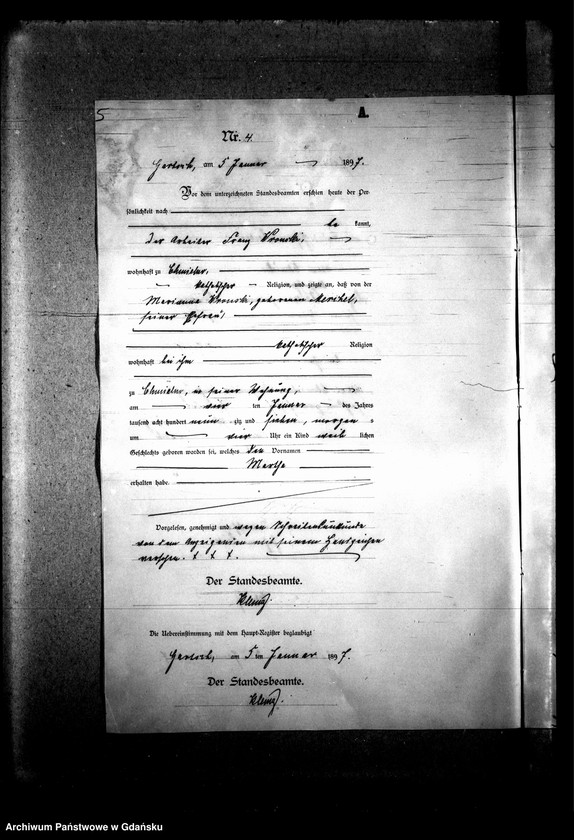 5
A.
Nr. 4.
am 5 Januar 1897.
Vor dem unterzeichneten Standesbeamten erschien heute, der Per-
sönlichkeit nach
be kannt,
der Arbeiter Franz Wronski,
wohnhaft zu
katholischer Religion, und zeigte an, daß von der
Marianna Wronski, geborenen
seiner Ehefrau,
katholischer Religion
wohnhaft bei ihm
zu in seiner Wohnung,
am vier ten Januar des Jahres
tausend acht hundert neun zig und sieben, morgens
um vier Uhr ein Kind weib lichen
Geschlechts geboren worden sei, welches den Vornamen
Martha
erhalten habe.
Vorgelesen, genehmigt und wegen Schreibensunkunde
von dem Anzeigenden mit seinem Handzeichen
versehen. † † †.
Der Standesbeamte.
Die Uebereinstimmung mit dem Haupt-Register beglaubigt
am 5 ten Januar 1897.
Der Standesbeamte.
Archiwum Państwowe w Gdańsku